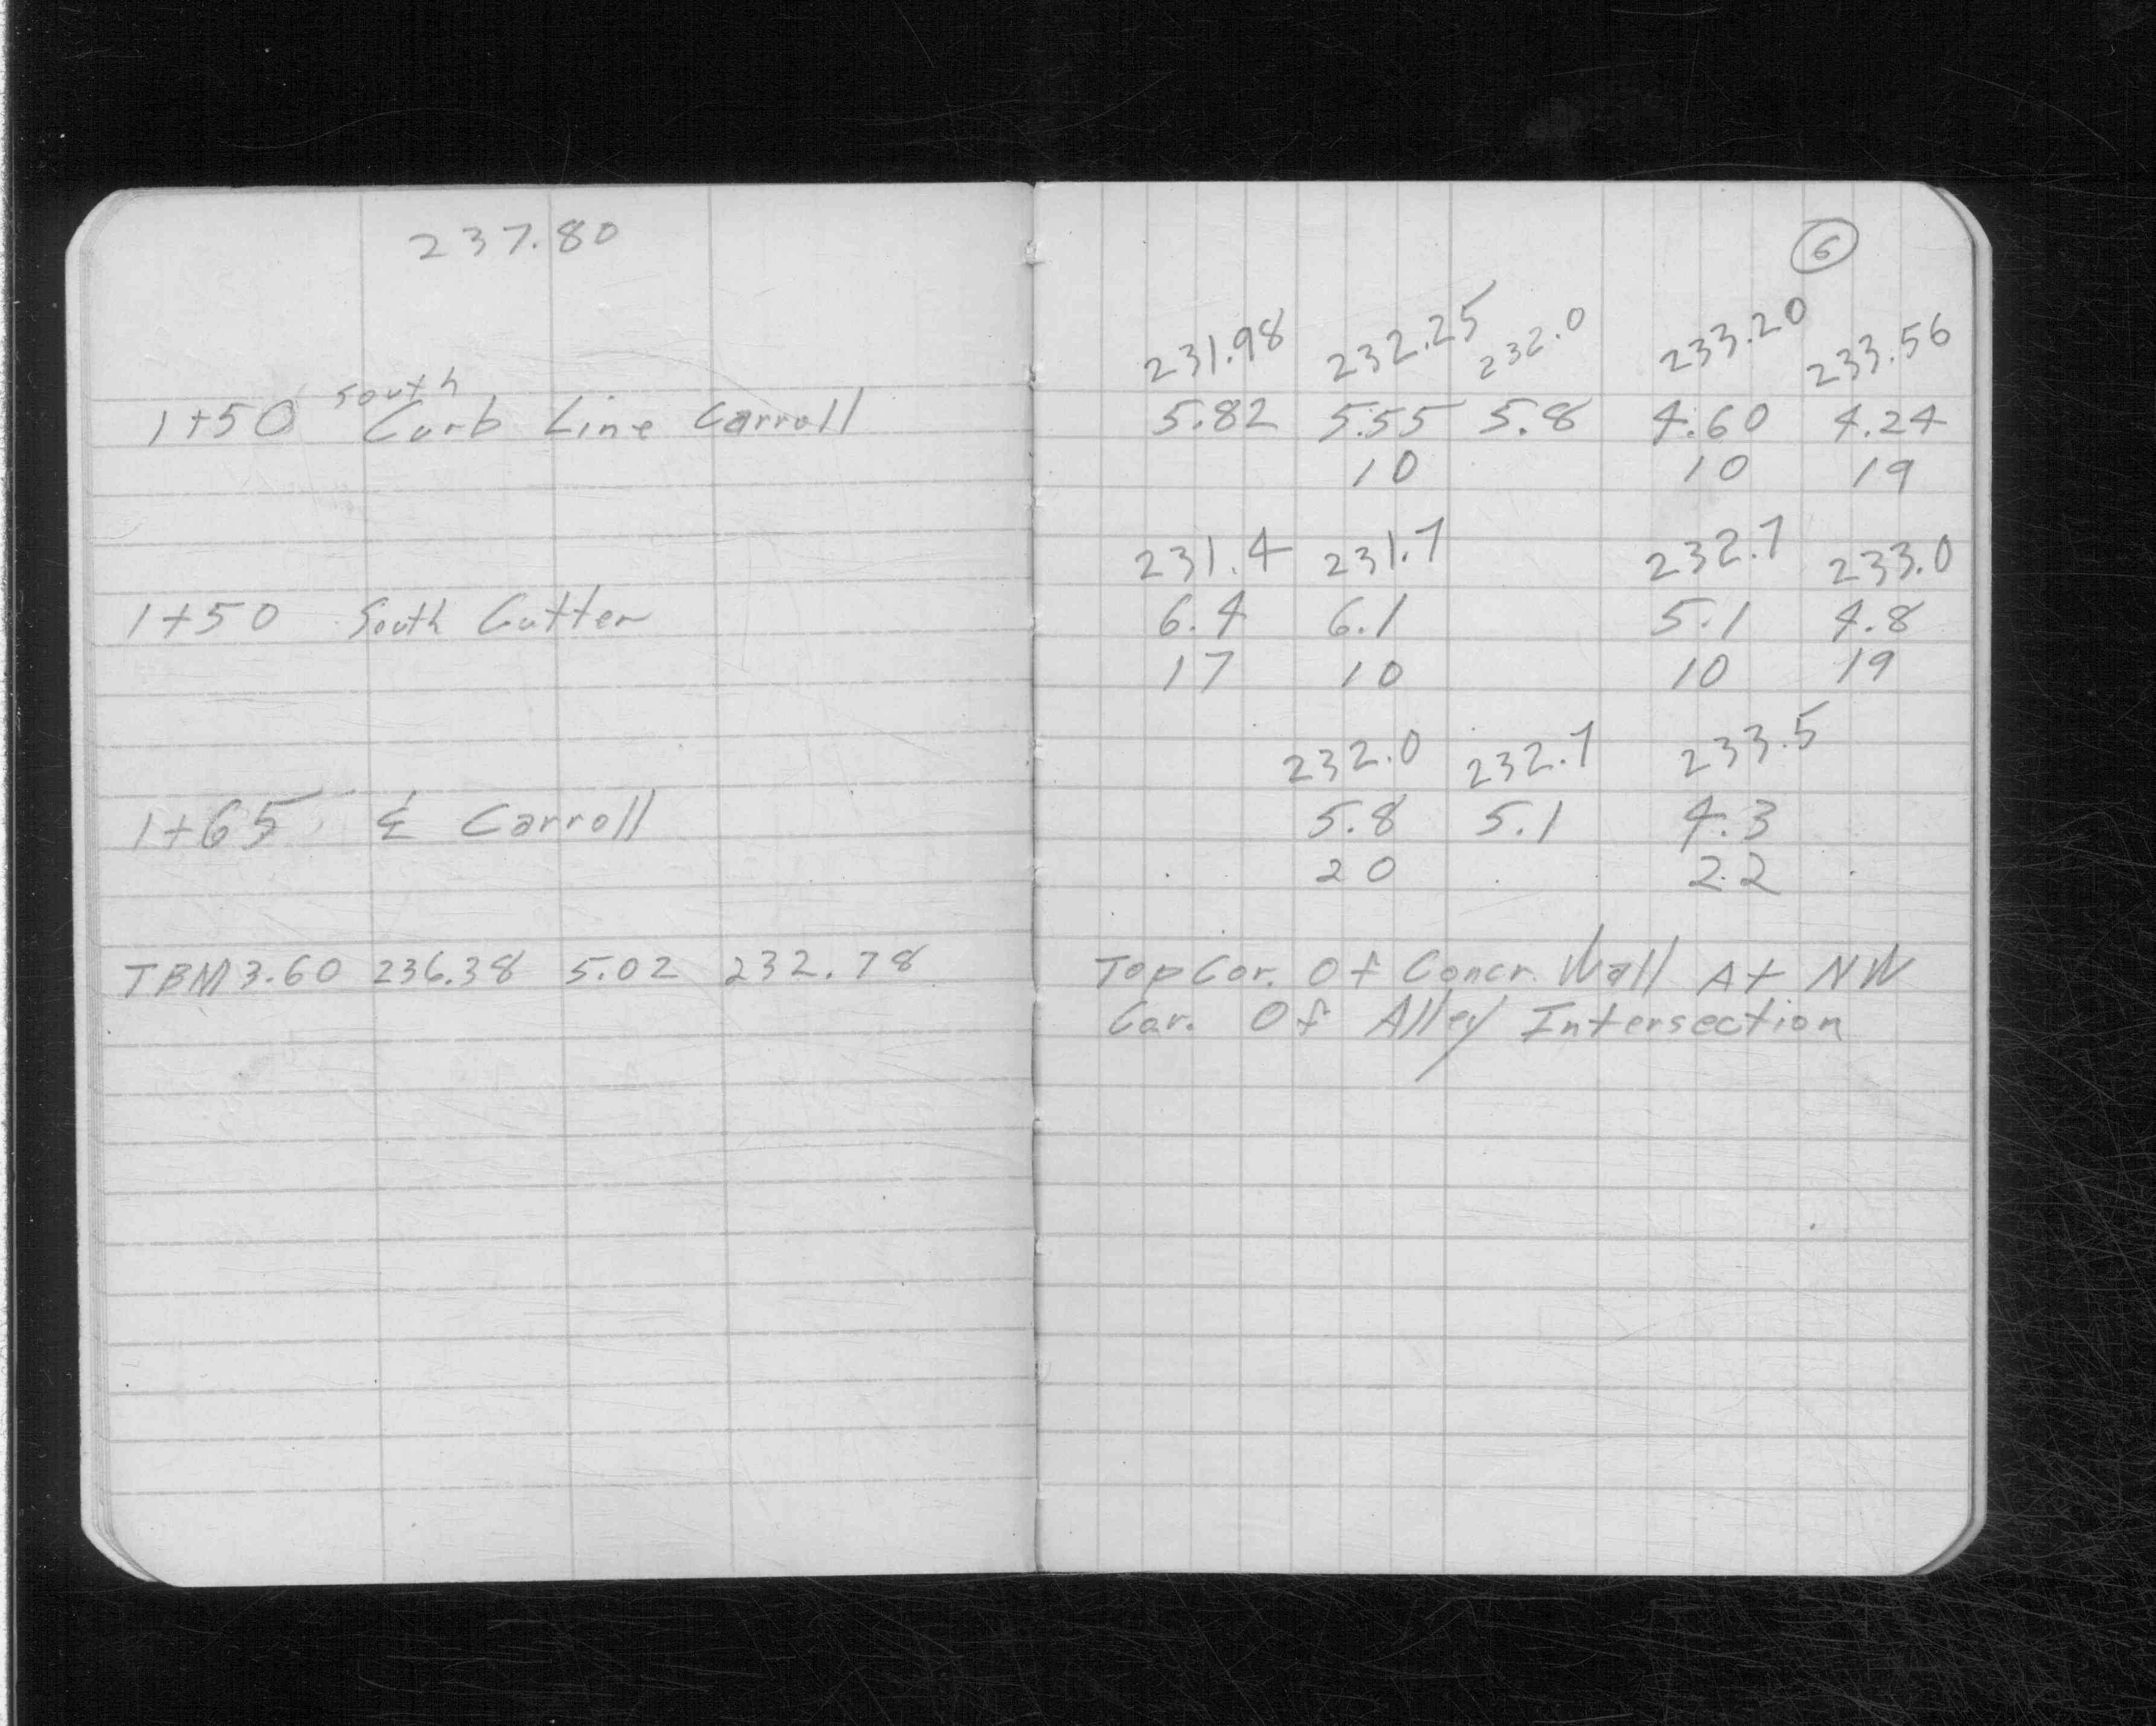 237.80
1+50 South Curb Line Carroll
1+50 South Gutter
1+65 ⅊ Carroll
TBM 3.60 236.38 5.02 232.78
6
231.98 232.25 232.0 233.20 233.56
5.82 5.55 5.8 4.60 4.24
10 10 19
231.4 231.7 232.7 233.0
6.4 6.1 5.1 4.8
17 10 10 19
232.0 232.7 233.5
5.8 5.1 4.3
20 22
Top Cor. Of Concr. Wall At NW
Cor. Of Alley Intersection